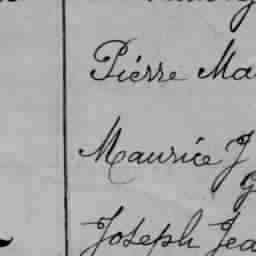 Pierre Ma
Maurice J
G
Joseph Jea